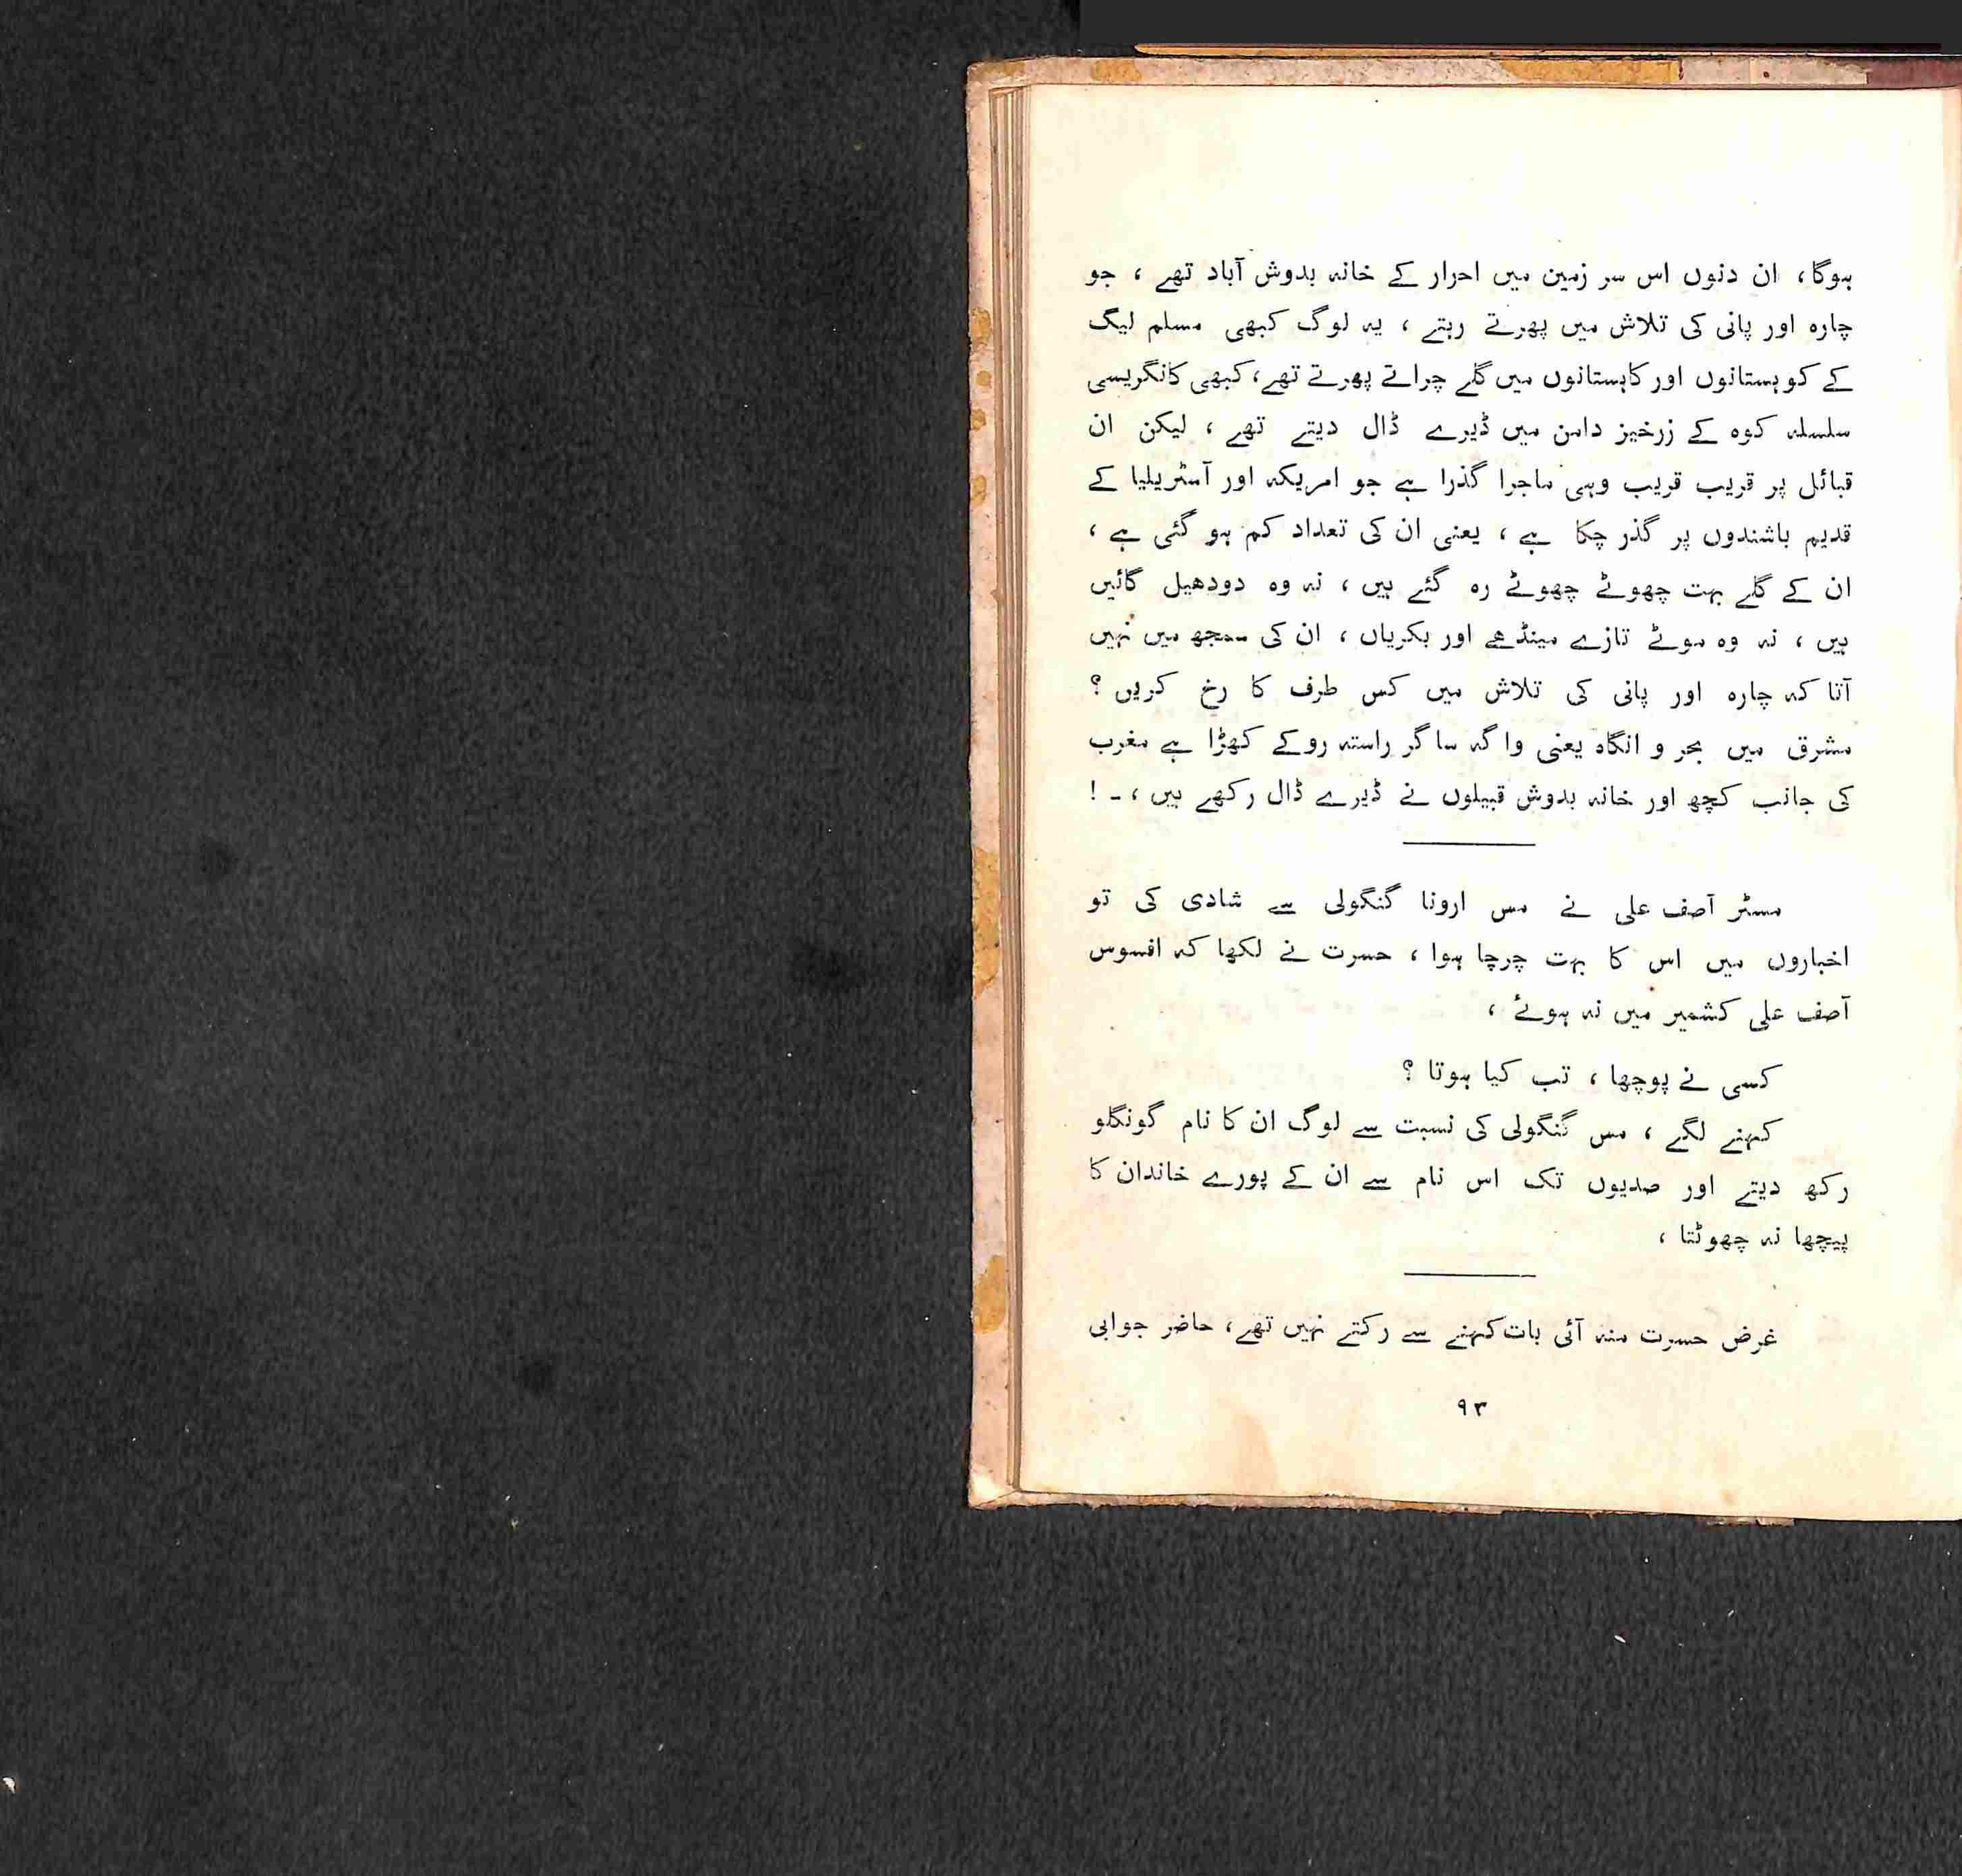 ہوگا، ان دنوں اس سر زمین میں احرار کے خانہ بدوش آباد تھے ، جو
چارہ اور پانی کی تلاش میں پھرتے رہتے ، یہ لوگ کبھی مسلم لیگ
کے کوہستانوں اور کاہستانوں میں گلے چراتے پھرتے تھے، کبھی کانگریسی
سلسلہ کوہ کے زرخیز دامن میں ڈیرے ڈال دیتے تھے ، لیکن ان
قبائل پر قریب قریب وہی ماجرا گذرا ہے جو امریکہ اور آسٹریلیا کے
قدیم باشندوں پر گذر چکا ہے ، یعنی ان کی تعداد کم ہو گئی ہے ،
ان کے گلے بہت چھوٹے چھوٹے رہ گئے ہیں ، نہ وہ دودھیل گائیں
ہیں ، نہ وہ موٹے تازے مینڈھے اور بکریاں ، ان کی سمجھ میں نہیں
آتا کہ چارہ اور پانی کی تلاش میں کس طرف کا رخ کریں ؟
مشرق میں بحر و انگاہ یعنی واگہ ساگر راستہ روکے کھڑا ہے مغرب
کی جانب کچھ اور خانہ بدوش قبیلوں نے ڈیرے ڈال رکھے ہیں ، ۔ !
مسٹر آصف علی نے مس ارونا گنگولی سے شادی کی تو
اخباروں میں اس کا بہت چرچا ہوا ، حسرت نے لکھا کہ افسوس
آصف علی کشمیر میں نہ ہوئے ،
کسی نے پوچھا ، تب کیا ہوتا ؟
کہنے لگے ، مس گنگولی کی نسبت سے لوگ ان کا نام گونگلو
رکھ دیتے اور صدیوں تک اس نام سے ان کے پورے خاندان کا
پیچھا نہ چھوٹتا ،
غرض حسرت منہ آئی بات کہنے سے رکتے نہیں تھے، حاضر جوابی
۹۳